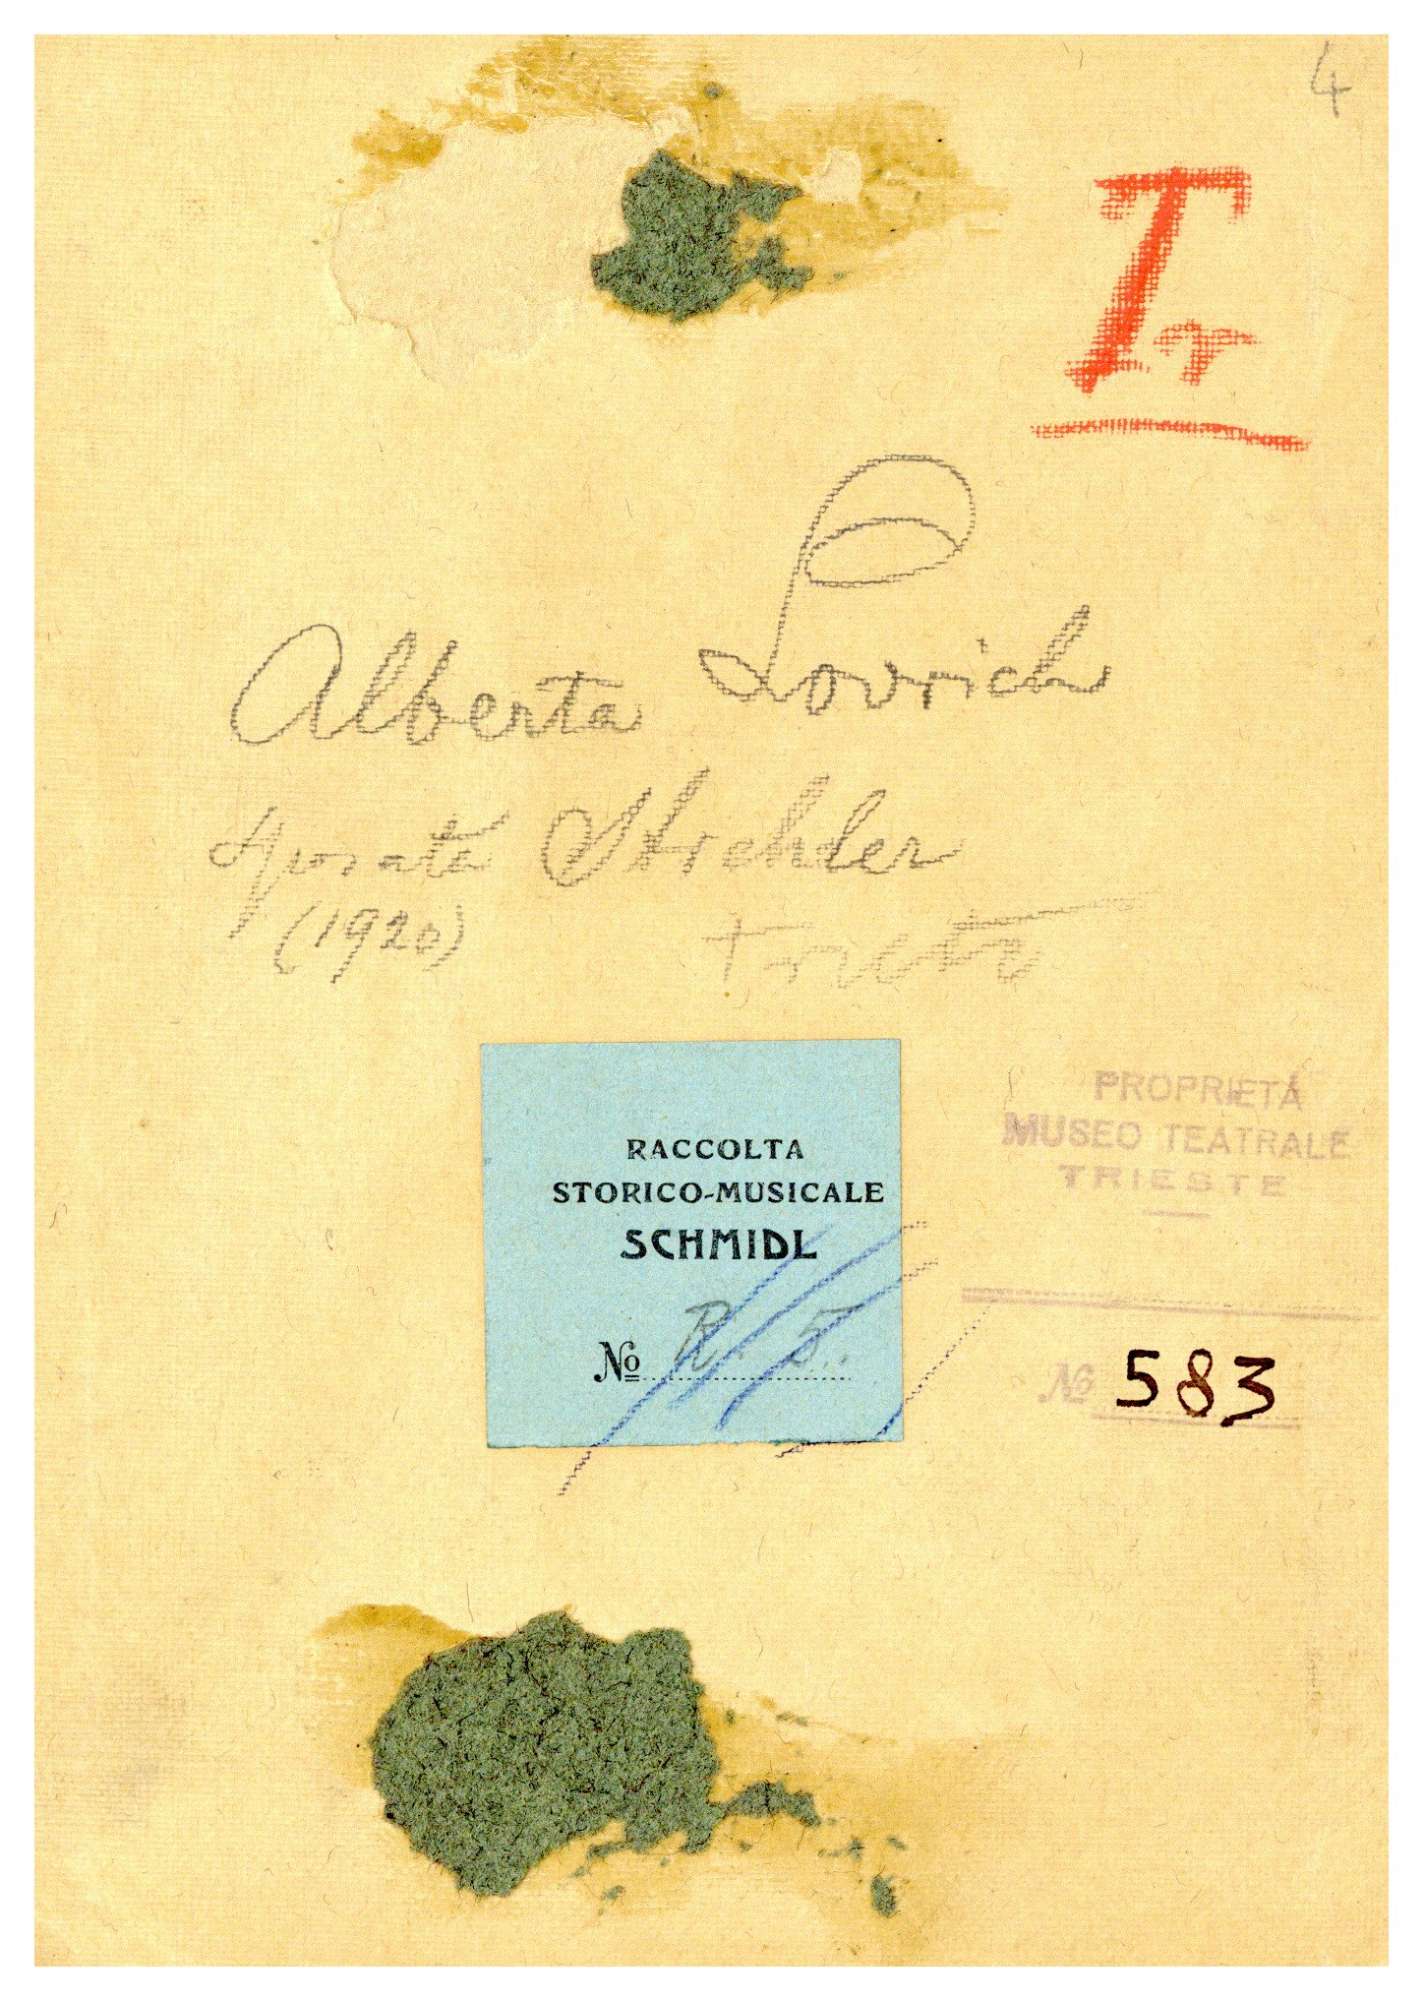 4
Tr
Alberta Lovrich
sposata
(1920)
RACCOLTA
STORICO-MUSICALE
SCHMIDL
No R. 5.
PROPRIETÀ
MUSEO TEATRALE
TRIESTE
No 583